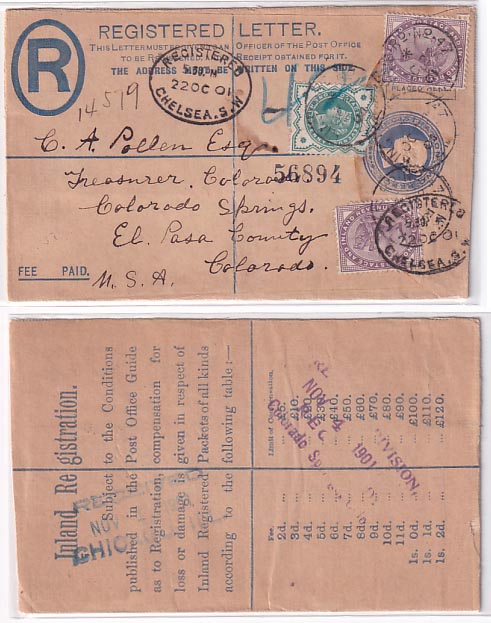 REGISTERED LETTER.
THIS LETTER MUST BE GIVEN TO AN OFFICER OF THE POST OFFICE
TO BE REGISTERED AND A RECEIPT OBTAINED FOR IT.
THE ADDRESS MUST BE WRITTEN ON THIS SIDE
R
REGISTERED
22 OC 01
CHELSEA.S.W
PLACED HERE
14579
C. A. Pollen Esq.
56894
Treasurer, Colorado
Colorado Springs.
El Pasa County
Colorado.
FEE PAID.
U.S.A.
REGISTERED
22 OC 01
CHELSEA.S.W
Inland Registration.
Subject to the Conditions
published in the Post Office Guide
as to Registration, compensation for
loss or damage is given in respect of
Inland Registered Packets of all kinds
according to the following table:—
Fee. Limit of Compensation.
2d. ... £5.
3d. ...
4d. ...
5d. ...
6d. ... £40.
7d. ... £50.
8d. ... £60.
9d. ... £70.
10d. ... £80.
11d. ... £90.
1s. 0d. ... £100.
1s. 1d. ... £110.
1s. 2d. ... £120.
DIVISION
NOV 4 1901
REC
Colorado
NOV
CHICAGO